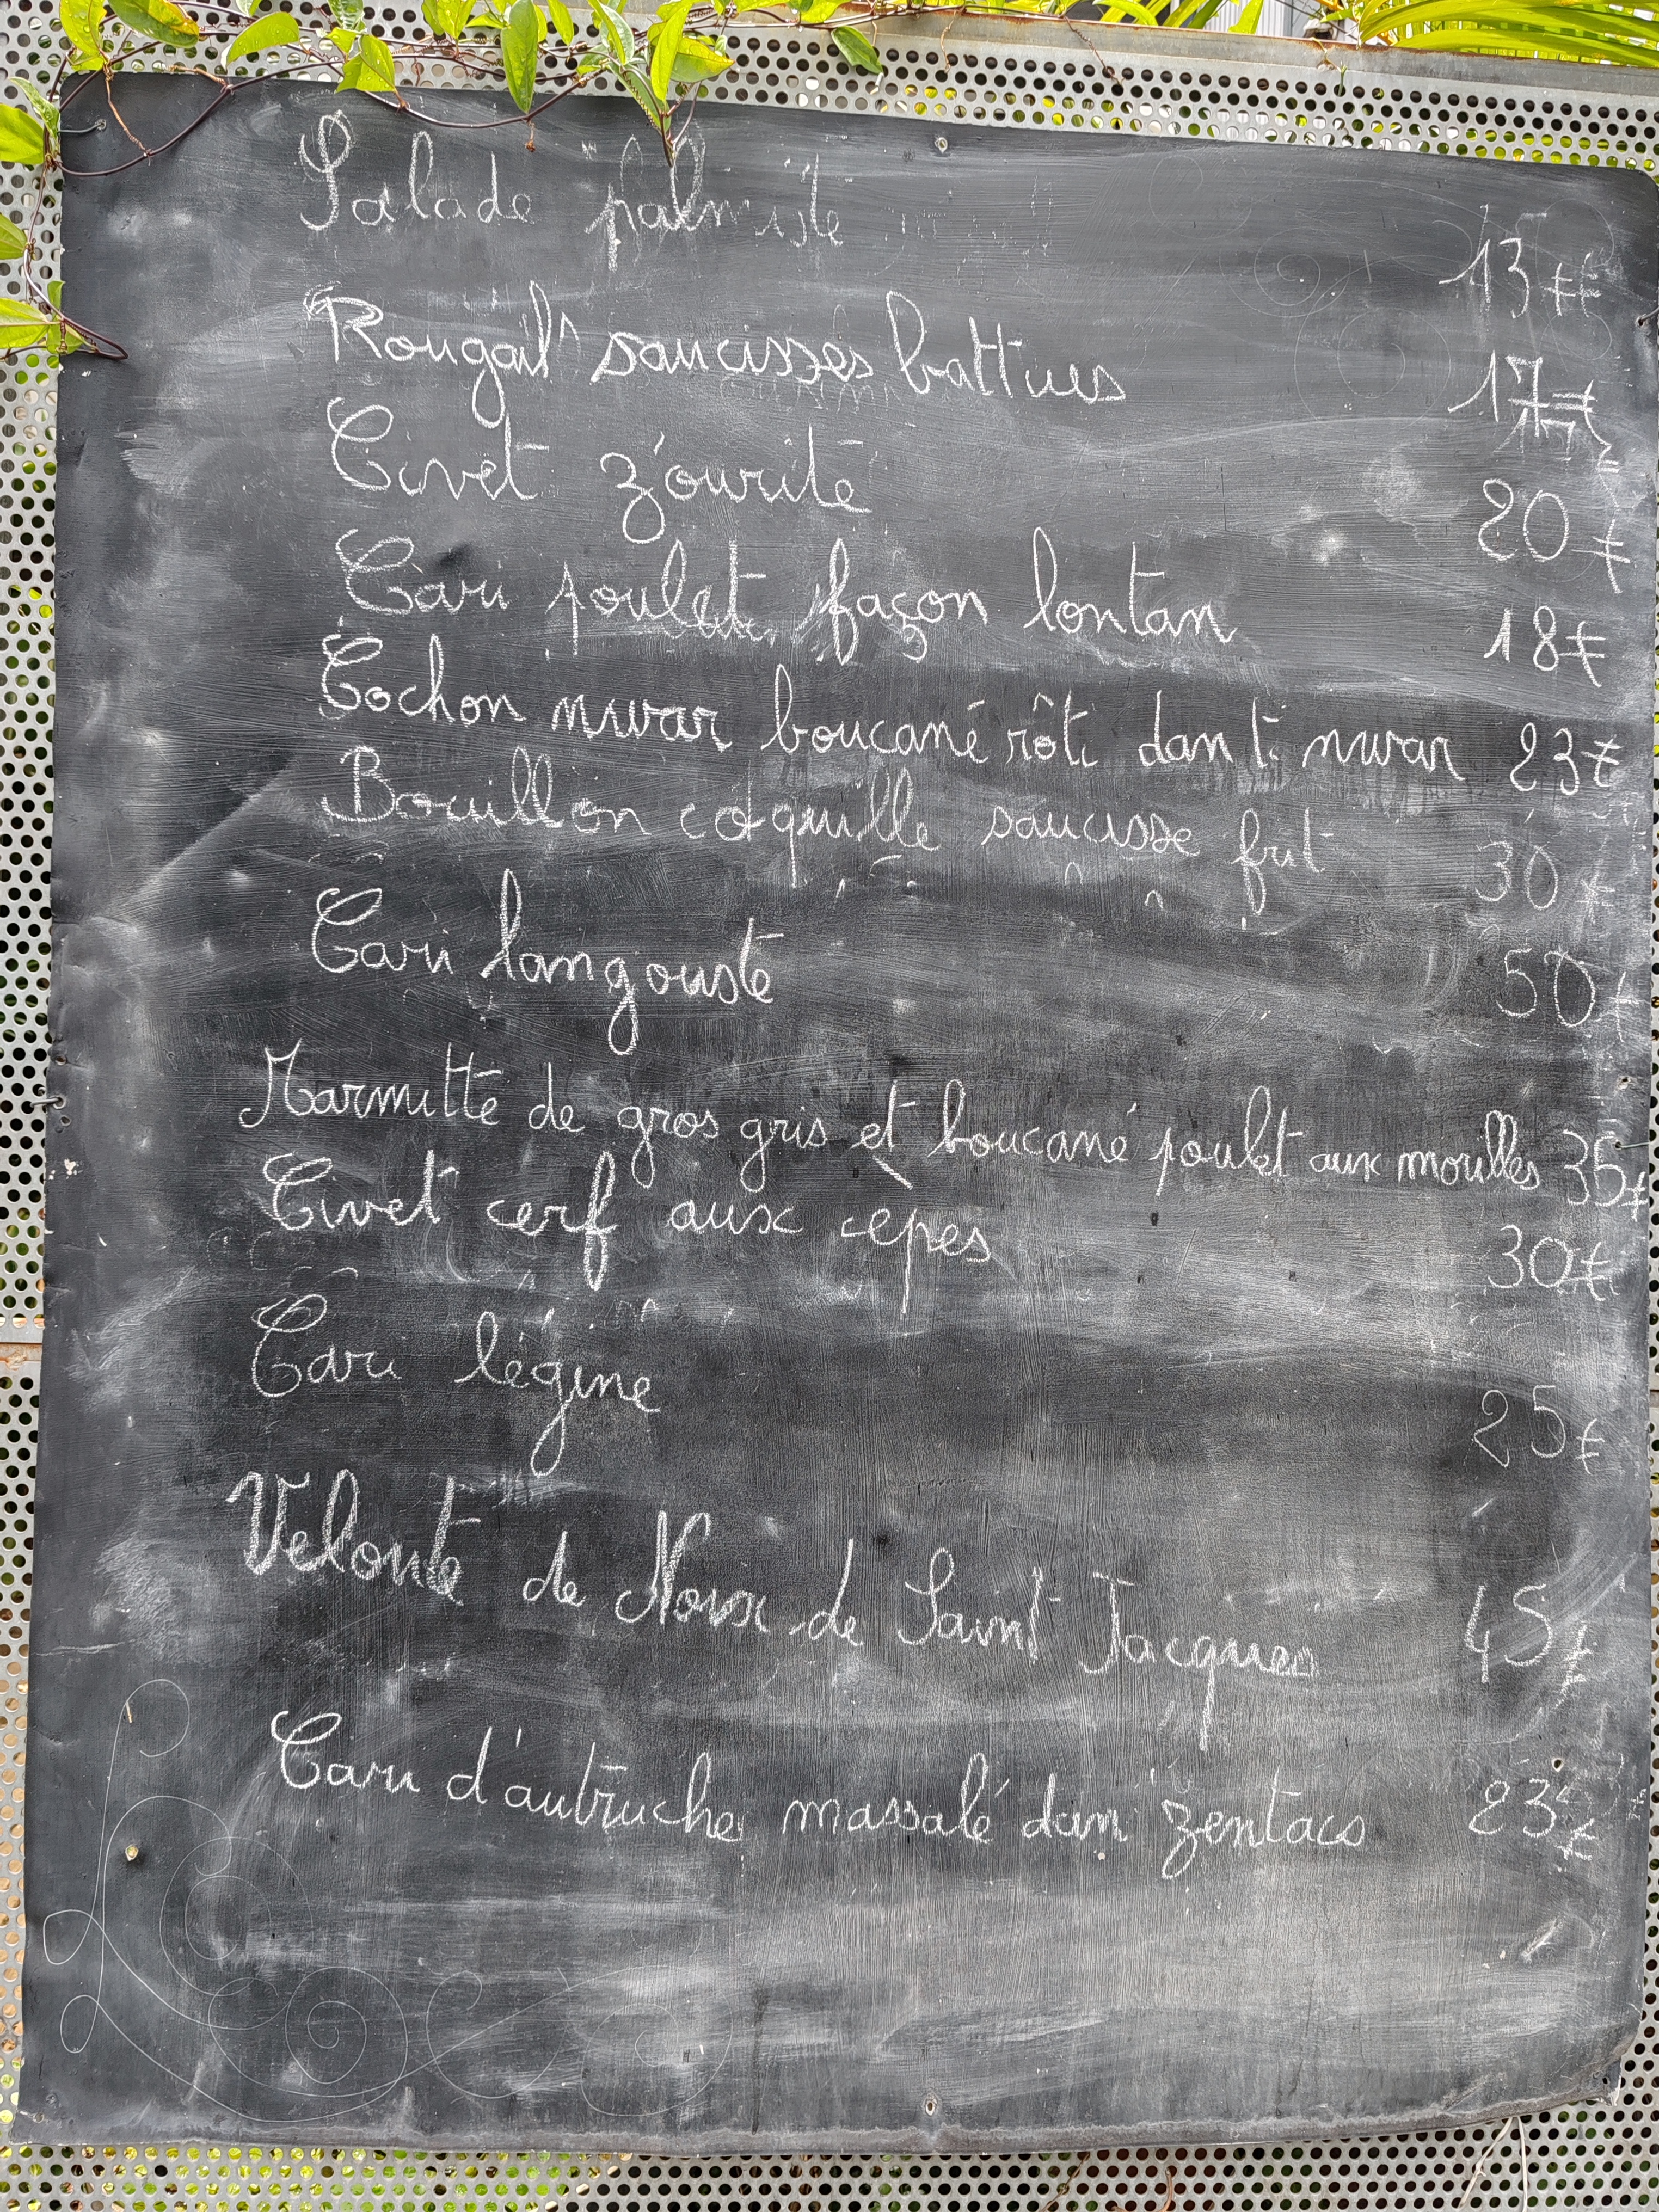 Salade palmiste 13€
Rougail saucisses battues 17€
Civet z'ourite 20€
Cari poulet façon lontan 18€
Cochon nwar boucané rôti dan ti nwar 23€
Bouillon coquille saucisse frit 30€
Cari langouste 50€
Marmitte de gros gris et boucané poulet aux morilles 35€
Civet cerf aux cèpes 30€
Cari légine 25€
Velouté de Noix de Saint Jacques 45€
Cari d'autruche massalé dan zentacs 23€